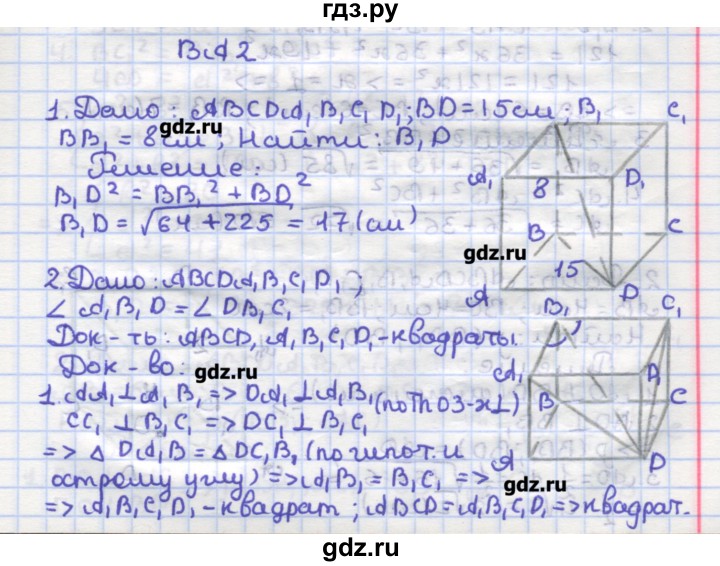 гдз.ру
ВА2
1. Дано: ABCDA₁B₁C₁D₁; BD = 15 см;
BB₁ = 8 см; Найти: B₁D
gdz.ru
Решение:
B₁D² = BB₁² + BD²
B₁D = √64 + 225 = 17 (см)
B₁
C₁
A₁
8
D₁
B
C
gdz.ru
15
A
D
2. Дано: ABCDA₁B₁C₁D₁;
∠ A₁B₁D = ∠ DB₁C₁
Док-ть: ABCD, A₁B₁C₁D₁ - квадраты.
Док-во:
gdz.ru
1. AA₁ ⊥ A₁B₁ => DA₁ ⊥ A₁B₁
CC₁ ⊥ B₁C₁ => DC₁ ⊥ B₁C₁
(по Th О 3-х ⊥)
=> △ DA₁B = △ DC₁B₁ (по гипот. и
острому углу) => A₁B₁ = B₁C₁ =>
=> A₁B₁C₁D₁ - квадрат; ABCD = A₁B₁C₁D₁ => квадрат.
B₁
C₁
A₁
D₁
B
C
A
D
gdz.ru
gdz.ru